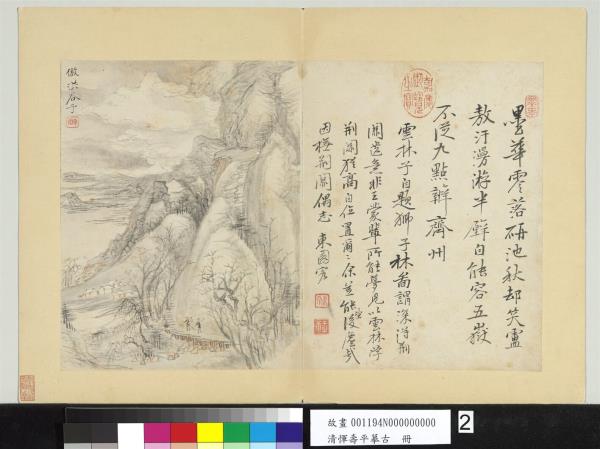 墨華零落硏池秋却笑盧
敖汗漫游半壁自能容五嶽
不從九點辨齊州
雲林子自題獅子林圖謂深得荊
關遺意非王蒙輩所能夢見以雲林學
荊關猶高自位置爾爾余並能
因橅荊關偶志 東園客
倣洪谷子
故畫 001194N000000000
清惲壽平摹古 冊
2